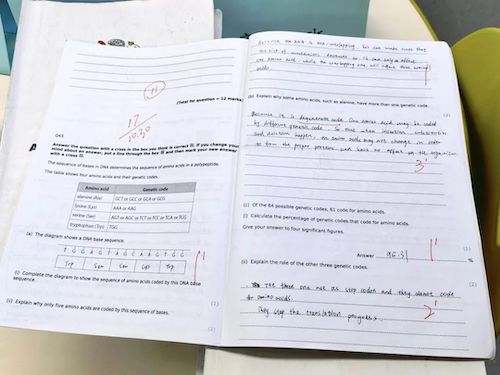 11
(Total for question = 12 marks)
17
10:30
Q43.
Answer the question with a cross in the box you think is correct ☒. If you change your
mind about an answer, put a line through the box and then mark your new answer
with a cross ☒.
The sequence of bases in DNA determines the sequence of amino acids in a polypeptide.
The table shows four amino acids and their genetic codes.
Amino acid Genetic code
alanine (Ala) GCT or GCC or GCA or GCG
lysine (Lys) AAA or AAG
serine (Ser) AGT or AGC or TCT or TCC or TCA or TCG
tryptophan (Trp) TGG
(a) The diagram shows a DNA base sequence.
Trp Ser Ser Trp
1
(i) Complete the diagram to show the sequence of amino acids coded by this DNA base
sequence.
(1)
(ii) Explain why only five amino acids are coded by this sequence of bases.
(2)
Because the DNA is non-overlapping,
one amino acid, while the overlapping one will
1
(b) Explain why some amino acids, such as alanine, have more than one genetic code.
(3)
Because it is degenerate code. One amino acid may be coded
by different genetic code. So that when insertion, substitution
and deletion happen, an amino acid may not change in order
to form the proper protein and have no effect on the organism.
3
(c) Of the 64 possible genetic codes, 61 code for amino acids.
(i) Calculate the percentage of genetic codes that code for amino acids.
Give your answer to four significant figures.
1
(1)
Answer 95.31 %
(ii) Explain the role of the other three genetic codes.
(2)
The three one act as stop codon and they do not code
for amino acids.
They stop the translation progress.
2